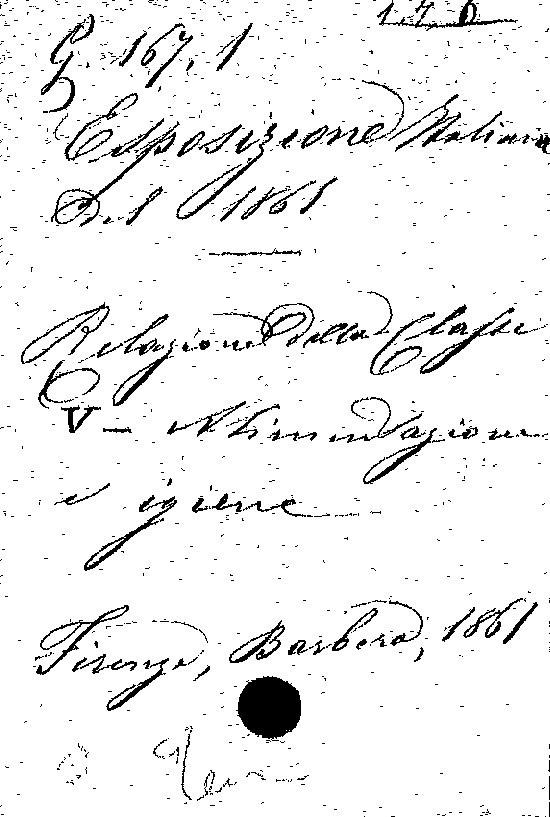 G. 167, 1
Esposizione Italiana
Del 1861
Relazione della Classe
V - Alimentazione
e igiene
Firenze, Barbera, 1861